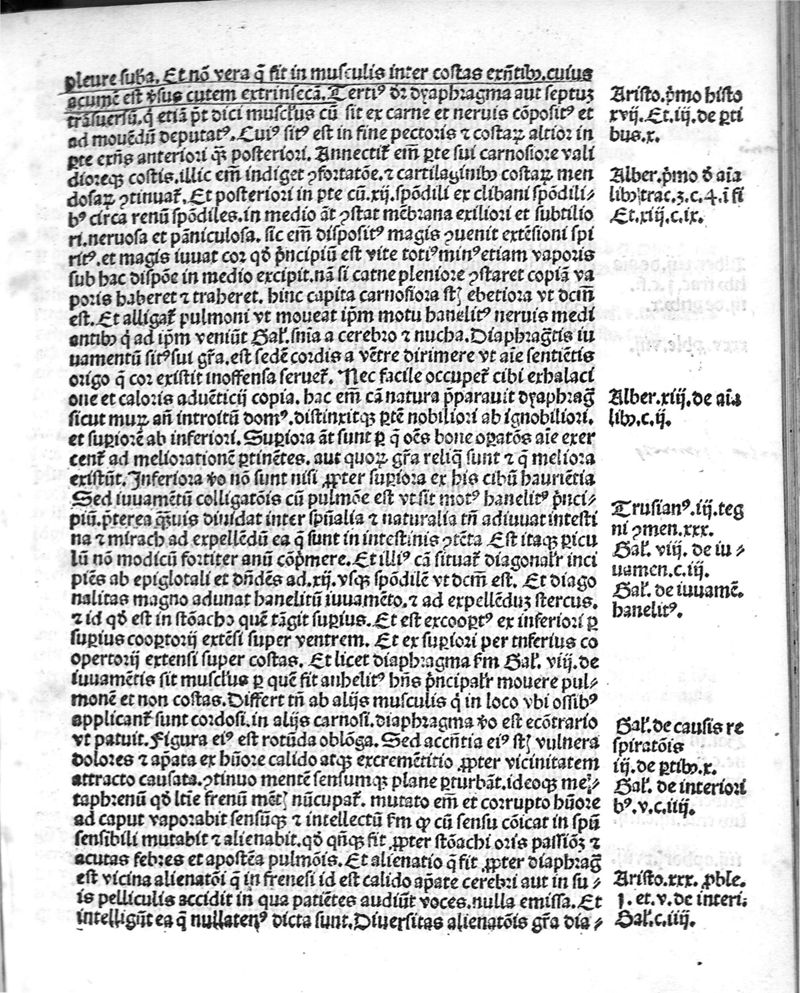 pleure suba. Et nõ vera q̃ fit in musculis inter costas exñtibꝰ. cuius
acumẽ est ṽsus cutem extrinsecã. Tertiꝰ dr̃ dyaphragma aut septuz
trãsuersũ. q̃ etiã p̃t dici muscĺus cũ sit ex carne et neruis cõpositꝰ et
ad mouẽdũ deputatꝰ. Cuiꝰ sitꝰ est in fine pectoris ⁊ costaꝝ altior in
ꝑte exñs anteriori q̃ꝫ posteriori. Annectit̃ em̃ ꝑte sui carnosiore vali
dioreqꝫ costis. illic em̃ indiget ꝯfortatõe. ⁊ cartilaginibꝰ costaꝝ men
dosaꝝ ꝯtinuat̃. Et posteriori in ꝑte cũ. xij. spõdili ex clibani spõdili⸗
bꝰ circa renũ spõdiles. in medio ãt ꝯstat mẽbrana exiliori et subtilio
ri. neruosa et pãniculosa. sic em̃ dispositꝰ magis ꝯuenit extẽsioni spi
ritꝰ. et magis iuuat cor qđ p̃ncipiũ est vite totiꝰ minꝰ etiam vaporis
sub hac dispõe in medio excipit. nã si carne pleniore ꝯstaret copiã va
poris haberet ⁊ traheret. hinc capita carnosiora st̃ hebetiora vt dcm̃
est. Et alligat̃ pulmoni vt moueat ip̃m motu hanelitꝰ neruis medi
antibꝰ q̃ ad ip̃m veniũt Gal̃. sñia a cerebro ⁊ nucha. Diaphragtis iu
uamentũ sitꝰ sui gr̃a. est sedẽ cordis a vẽtre dirimere vt aĩe sentiẽtis
origo q̃ cor existit inoffensa seruet̃. Nec facile occupet̃ cibi exhalaci
one et caloris aduẽticij copia. hac em̃ cã natura p̃parauit dyaphrag̃
sicut muꝝ añ introitũ domꝰ. distinxitqꝫ ꝑtẽ nobiliori ab ignobiliori.
et suꝑiorẽ ab inferiori. Suꝑiora ãt sunt ꝑ q̃ oẽs bone oꝑatões aĩe exer
cent̃ ad meliorationẽ ꝑtinẽtes. aut quoꝝ gr̃a reliq̃ sunt ⁊ q̃ meliora
existũt. Inferiora ṽo nõ sunt nisi ꝓpter suꝑiora ex his cibũ hauriẽtia
Sed iuuamẽtũ colligatõis cũ pulmõe est vt sit motꝰ hanelitꝰ p̃nci⸗
piũ. p̃terea q̃ꝫuis diuidat inter sp̃ualia ⁊ naturalia tñ adiuuat intesti
na ⁊ mirach ad expellẽdũ ea q̃ sunt in intestinis ꝯtẽta Est itaqꝫ ꝑicu
lũ nõ modicũ fortiter anũ cõp̃mere. Et illiꝰ cã situat̃ diagonal̃r inci
piẽs ab epiglotali et dñdẽs ad. xij. vsqꝫ spõdilẽ vt dcm̃ est. Et diago
nalitas magno adunat hanelitũ iuuamẽto. ⁊ ad expellẽduz stercus.
⁊ id qđ est in stõacho quẽ tãgit suꝑius. Et est excooꝑtꝰ ex inferiori ꝑ
suꝑius cooꝑtorij extẽsi super ventrem. Et ex suꝑiori per inferius co
opertorij extensi super costas. Et licet diaphragma ẜm Gal̃. viij. de
iuuamẽtis sit muscĺus ꝑ quẽ fit anhelitꝰ hñs p̃ncipal̃r mouere pul⸗
monẽ et non costas. Differt tñ ab alijs musculis q̃ in loco vbi ossibꝰ
applicant̃ sunt cordosi. in alijs carnosi. diaphragma ṽo est ecõtrario
vt patuit. Figura eiꝰ est rotũda oblõga. Sed accñtia eiꝰ st̃ vulnera
dolores ⁊ aꝑata ex hũore calido atqꝫ excremẽtitio ꝓpter vicinitatem
attracto causata. ꝯtinuo mentẽ sensumqꝫ plane ꝑturbãt. ideoqꝫ me⸗
taphrenũ qđ ltĩe frenũ mẽt̃ nũcupat̃. mutato em̃ et corrupto hũore
ad caput vaporabit sensũqꝫ ⁊ intellectũ ẜm ꝙ cũ sensu cõicat in spũ
sensibili mutabit ⁊ alienabit. qđ qñqꝫ fit ꝓpter stõachi oris passiõꝫ ⁊
acutas febres et apostẽa pulmõis. Et alienatio q̃ fit ꝓpter diaphrag̃
est vicina alienatõi q̃ in frenesi id est calido aꝑate cerebri aut in su⸗
is pelliculis accidit in qua patiẽtes audiũt voces. nulla emissa. Et
intelligũt ea q̃ nullatenꝰ dicta sunt. Diuersitas alienatõis gr̃a dia⸗
Aristo. p̃mo histo
xvij. Et. iij. de ꝑti
bus. x.
Alber. p̃mo đ aĩa
libꝰ trac. 3. c. 4. ĩ fi
Et. xiij. c. ix.
Alber. xiij. de aĩa
libꝰ. c. ij.
Trusianꝰ. iij. teg
ni ꝯmen. xxx.
Gal̃. viij. de iu⸗
uamen. c. iij.
Gal̃. de iuuamẽ.
hanelitꝰ.
Gal̃. de causis re
spiratõis
iij. de ꝑtibꝰ. x.
Gal̃. de interiori
bꝰ. v. c. iiij.
Aristo. xxx. ꝓble.
j. et. v. de interi.
Gal̃. c. iiij.